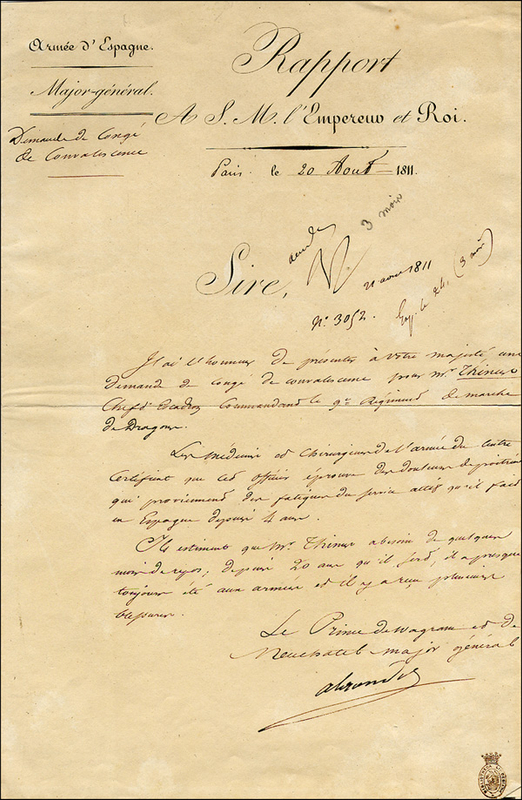 Armée d'Espagne.
Major-général.
Demande de Congé
de Convalescence
Rapport
A S. M. l'Empereur et Roi.
Paris le 20 Août 1811.
3 mois
Sire,
N.
21 aout 1811
(3 mois)
N.° 3052.
J'ai l'honneur de présenter à Votre majesté une
demande de Congé de convalescence pour Mr. Thinus
Chef d'Escadron Commandant le 9e Régiment de marche
de Dragons.
Les médecins et Chirurgiens de l'armée du Centre
Certifient que cet officier éprouve des douleurs de poitrine
qui proviennent des fatigues du service actif qu'il fait
en Espagne depuis 4 ans.
Ils estiment que Mr. Thinus a besoin de quelques
mois de repos; depuis 20 ans qu'il sert, il a presque
toujours été aux armées et il y a reçu plusieurs
blessures.
Le Prince de Wagram et de
Neuchatel major général
alexandre